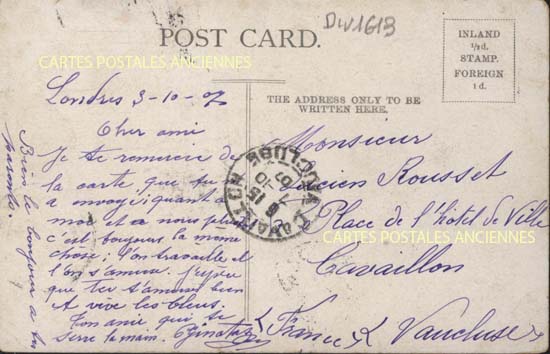 Div1613
POST CARD.
CARTES POSTALES ANCIENNES
INLAND
½d.
STAMP.
FOREIGN
1d.
THE ADDRESS ONLY TO BE
WRITTEN HERE.
Londres 3-10-07
Cher ami
Je te remercie de
la carte que tu
a envoyi quant a
moi et a nous plus
c'est toujours la meme
chose; l'on travaille et
l'on s'amuse. J'espere
que tu s'amuses bien
et vive les bleus.
Ton ami qui te
serre la main.
Bien le bonjour a tes
parents.
CAVAILLON VAUCLUSE
Monsieur
Lucien Rousset
Place de l'hôtel de Ville
CARTES POSTALES ANCIENNES
Cavaillon
France Vaucluse